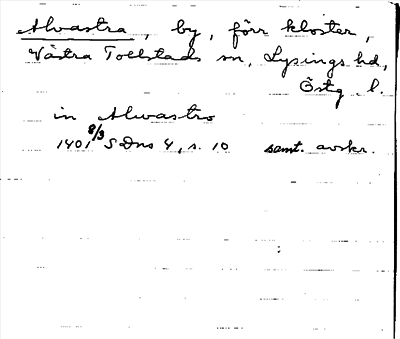 Alvastra, by, förr kloster,
Västra Tollstads sn, Lysings hd,
Östg. l.
in Alwastro
1401 8/3 SDns 4, s. 10 samt. avskr.